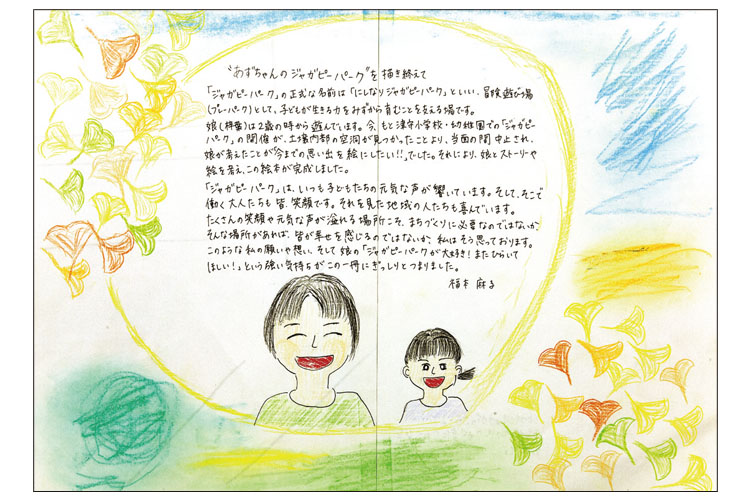 "あずちゃんのジャガピーパーク"を描き終えて
「ジャガピーパーク」の正式な名前は「にしなりジャガピーパーク」といい、冒険遊び場
(プレーパーク)として、子どもが生きる力をみずから育むことを支える場です。
娘()は2歳の時から遊んでいます。今、もと津守小学校・幼稚園での「ジャガピー
パーク」の開催が、土場内部の空洞が見つかったことより、当面の間中止され、
娘が考えたことが「今までの思い出を絵にしたい!!」でした。それにより、娘とストーリーや
絵を考え、この絵本が完成しました。
「ジャガピーパーク」は、いつも子どもたちの元気な声が響いています。そして、そこで
働く大人たちも皆、笑顔です。それを見た地域の人たちも喜んでいます。
たくさんの笑顔や元気な声が溢れる場所こそ、まちづくりに必要なのではないか、
そんな場所があれば、皆が幸せを感じるのではないか、私はそう思っております。
このような私の願いや想い、そして娘の「ジャガピーパークが大好き!またひらいて
ほしい!」という強い気持ちがこの一冊にぎっしりとつまりました。
福本 麻